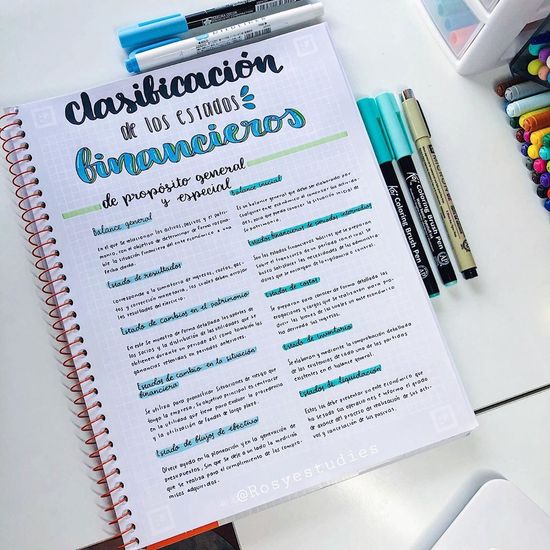 clasificación
de los estados
financieros
de propósito general
y especial
balance general
En el que se relacionan los activos, pasivos y el patri-
monio, con el objetivo de determinar de forma
ble la situación financiera del ente económico a una
fecha dada.
Estado de resultados
Corresponde a la sumatoria de ingresos, costos, gas-
tos y corrección monetaria, los cuales deben arrojar
los resultados del ejercicio.
Estado de cambios en el patrimonio
En este se muestra de forma detallada los aportes de
los socios y la distribución de las utilidades que se
obtienen durante un periodo así como también las
ganancias retenidas en periodos anteriores.
Estados de cambio en la situación
financiera
Se utiliza para pronosticar situaciones de riesgo que
tenga la empresa, su objetivo principal es centrarse
en la utilidad que tiene para evaluar la procedencia
y la utilización de fondos de largo plazo.
Estado de flujos de efectivo
Ofrece ayuda en la planeación y en la generación de
presupuestos. Sin que se deje a un lado la medición
que se realiza para el cumplimiento de los compro-
misos adquiridos.
balance inicial
Es un balance general que debe ser elaborado por
cualquier ente económico al comenzar sus activida-
des, para que pueda conocer la situación inicial de
Estados financieros de periodos intermedios
Son los estados financieros básicos que se preparan
durante el transcurso de un periodo con el fin de
satisfacer las necesidades de los administradores
que se encargan de la vigilancia y control.
Estado de costos
Se preparan para conocer de forma detallada las
erogaciones y cargos que se realizaron para pro-
ducir los bienes de los cuales un ente económico
ha derivado sus ingresos.
Estado de inventario
Se elaboran y mediante la comprobación detallada
de las existencias de cada una de las partidas
existentes en el balance general.
Estados de liquidación
Estos los debe presentar un ente económico que
ha cesado sus operaciones e informa el grado
de avance del proceso de realización de los acti-
vos y cancelación de los pasivos.
@Rosyestudies
Coloring Brush Pen
Coloring Brush Pen